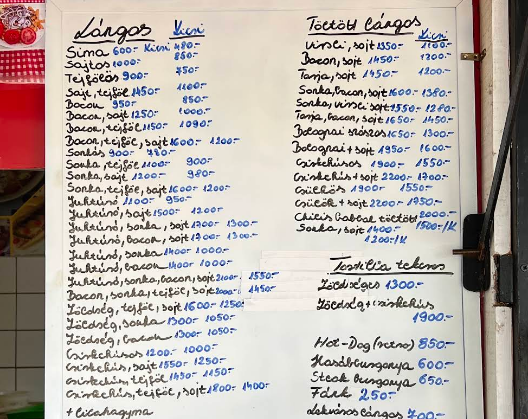 Lángos Kicsi
Sima 600.- Kicsi 480.-
Sajtos 1000.- 850.-
Tejfölös 900.- 750.-
Sajt, tejföl 1450.- 1100.-
Bacon 950.- 850.-
Bacon, sajt 1250.- 1000.-
Bacon, tejföl 1150.- 1090.-
Bacon, tejföl, sajt 1600.- 1200.-
Sonkás 900.- 780.-
Sonka, tejföl 1100.- 900.-
Sonka, sajt 1200.- 980.-
Sonka, tejföl, sajt 1600.- 1200.-
Juhtúró 1100.- 950.-
Juhtúró, sajt 1500.- 1200.-
Juhtúró, sonka, sajt 1700.- 1300.-
Juhtúró, bacon, sajt 1700.- 1300.-
Juhtúró, sonka 1400.- 1000.-
Juhtúró, bacon 1400.- 1000.-
Juhtúró, sonka, bacon, sajt 2000.- 1550.-
Bacon, sonka, tejföl, sajt 2000.- 1450.-
Zöldség, tejföl, sajt 1600.- 1250.-
Zöldség, sonka 1300.- 1050.-
Zöldség, bacon 1300.- 1050.-
Csirkehúsos 1200.- 1000.-
Csirkehús, sajt 1550.- 1250.-
Csirkehús, tejföl 1450.- 1150.-
Csirkehús, tejföl, sajt 1800.- 1400.-
+ lilahagyma
Töltött lángos Kicsi
Virsli, sajt 1350.- 1100.-
Bacon, sajt 1450.- 1200.-
Tarja, sajt 1450.- 1200.-
Sonka, bacon, sajt 1600.- 1380.-
Sonka, virsli, sajt 1550.- 1280.-
Tarja, bacon, sajt 1650.- 1450.-
Bolognai szószos 1650.- 1300.-
Bolognai + sajt 1950.- 1600.-
Csirkehúsos 1900.- 1550.-
Csirkehús + sajt 2200.- 1700.-
Csülkös 1900.- 1550.-
Csülök + sajt 2200.- 1750.-
töltött 2000.-
1500.-/K
Sonka, sajt 1400.-
1200/K
Tortilla tekercs
Zöldséges 1300.-
Zöldség + csirkehús
1900.-
Hot-Dog 850.-
Hasábburgonya 600.-
Steak burgonya 650.-
Fánk 250.-
Lekváros lángos 700.-